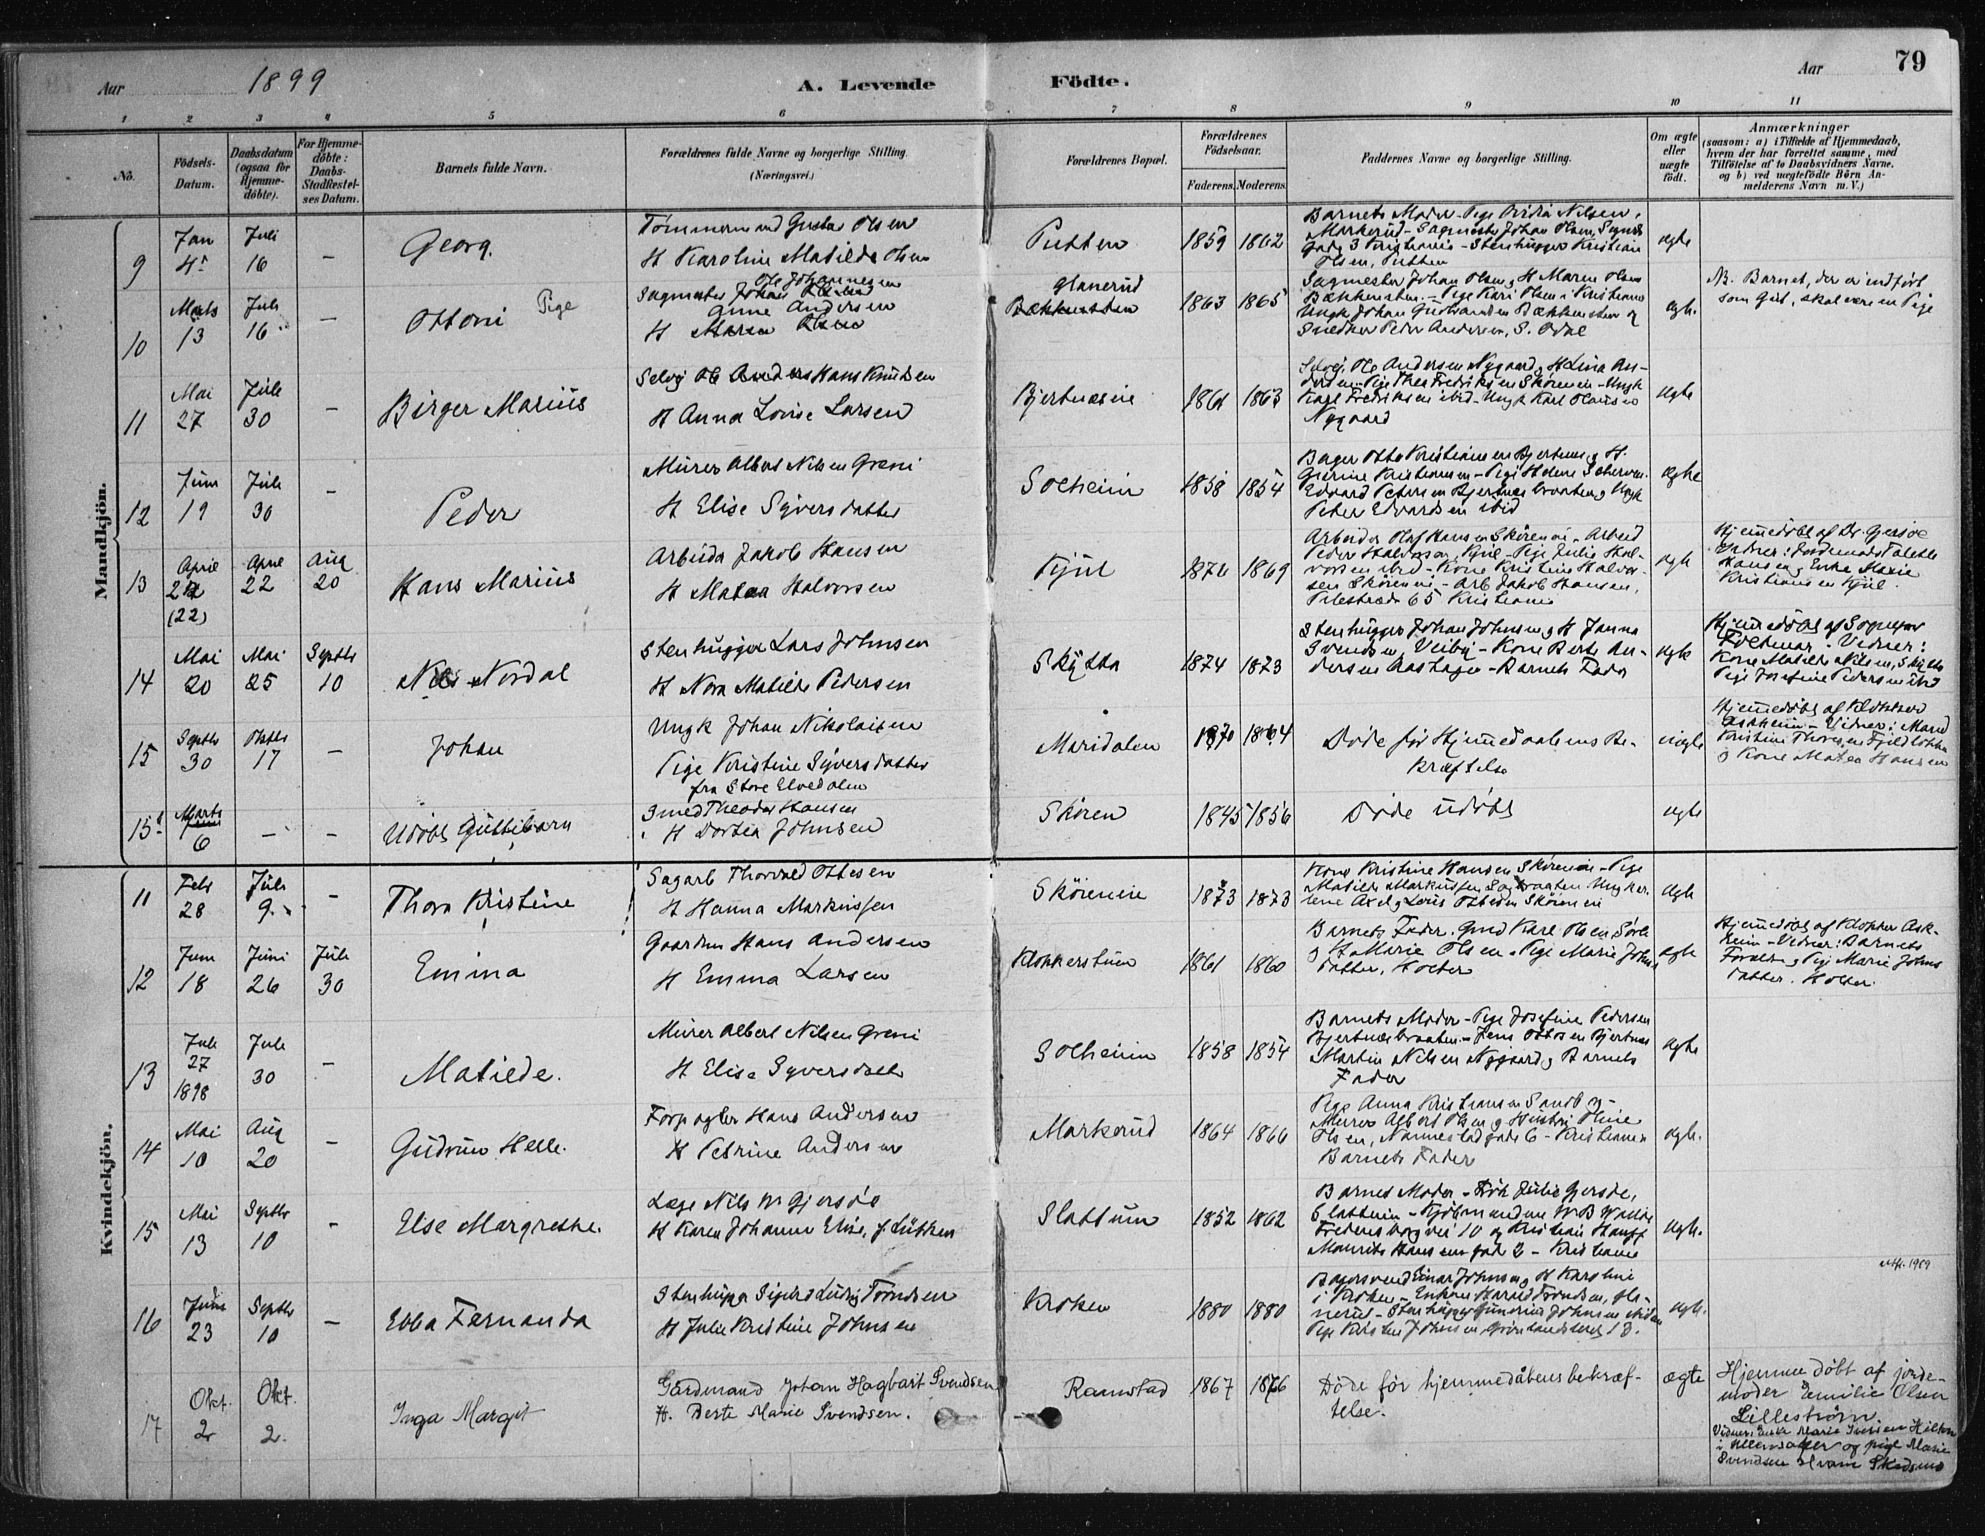 Aar 1899 A. Levende Födte. Aar 79
1 2 3 4 5 6 7 8 9 10 11
No. Födsels-Datum. Daabsdatum (ogsaa for Hjemmedöbte). For Hjemmedöbte: Daabs-Stadfæstelses Datum. Barnets fulde Navn. Forældrenes fulde Navne og borgerlige Stilling. (Næringsvei.) Forældrenes Bopæl. Forældrenes Födselsaar. Faderens. Moderens. Faddernes Navne og borgerlige Stilling. Om ægte eller uægte födt. Anmærkninger (saasom: a) i Tilfælde af Hjemmedaab, hvem der har forrettet samme, med Tilföielse af to Daabsvidners Navne, og b) ved uægtefödte Börn Anmelderens Navn m. V.)
Mandkjön.
9 Jan 4 Juli 16 – Georg. Tømmermand Gustav Olsen
H Karoline Matilde Olsen
Putten 1859 1862
Barnets Moder – Pige Nilsen,
Markerud – Sagmester Johan Olsen,
gade 3 Kristiania – Stenhugger Kristian
Olsen, Putten
ægte
10 Marts 13 Juli 16 – Ottoni Pige
Sagmester Ole Johannesen
Anne Andersen
H Maren Olsen
Glanerud
Bækkensten 1863 1865
Sagmester Johan Olsen, H Maren Olsen
Bækkensten – Pige Kari Olsen i Kristiania
Ungk Johan Bækkensten og
Snedker Peder Andersen, S. Odal
ægte.
NB. Barnet, der er indført
som Gut, skal være en Pige
11 Mai 27 Juli 30 – Birger Marius
Selvej Hans Knudsen
H Anna Lovise Larsen
Bjertnæseie 1861 1863
Selvej. Ole Andersen Nygaard, H Lina An-
dersen – Pige Thea Fredriksen Skøreneie – Ungk
Karl Fredriksen ibid – Ungk Karl Olausen
Nygaard
ægte
12 Juni 19 Juli 30 – Peder
Murer Albert Nilsen Greni
H Elise Syversdatter
Solheim 1858 1854
Bager Otto Kristiansen Bjertnæs, H.
Kristiansen – Pige Helene
Edvard Petersen Bjertnæsbraaten, Ungk
Peter Edvardsen ibid
ægte
13 April 22 (22) April 22 Aug 20 Hans Marius
Arbeider Jakob Hansen
H Matea Halvorsen
Kjul 1872 1869
Arbeider Olaf Hansen Skøreneie – Arbeid
Peder Halvorsen, Kjul – Pige Julie Hal-
vorsen ibid – Kone Kristine Halvor-
sen Skøreneie – Arb Jakob Hansen,
Pilestræde 65 Kristiania
ægte
Hjemmedøbt af Dr. Gjersøe
Vidner: Jordemoder
Hansen, Enke Maxie
Kristiansen Kjul
14 Mai 20 Mai 25 Septbr 10 Nils Nordal
Stenhugger Lars Johnsen
H Nora Matilde Pedersen
Skytta 1874 1873
Stenhugger Johan Johnsen, H Janna
Svendsen, Veiby – Kone Berte An-
dersen Aashagen – Barnets Fader
ægte
Hjemmedøbt af Sognepr
Folkmar. Vidner:
Kone Matilde Nilsen, Skytta
Pige Josefine Pedersen ibid
15 Septbr 30 Oktbr 17 – Johan
Ungk Johan Nikolaisen
Pige Kristine Syversdatter
fra Store Elvedalen
Maridalen 1870 1864
Døde før Hjemmedaabens Be-
kræftelse
uægte
Hjemmedøbt af Klokker
Askheim – Vidner: Mand
Kristine Thoresen
og Kone Matea Hansen
15b Marts 6 – – Udøbt Guttebarn
Smed Theodor Hansen
H Dortea Johnsen
Skøren 1845 1856
Døde udøbt
ægte
Kvindekjön.
11 Febr 28 Juli 9. – Thora Kristine
Sagarb Thorvald Ottesen
H Hanna Markussen
Skøreneie 1873 1873
Kone Kristine Hansen Skøreneie – Pige
Matilde Markussen Ungkar-
lene Axel og Louis Ottesen Skøreneie
ægte
12 Juni 18 Juni 26 Juli 30 Emma
Gaardm Hans Andersen
H Emma Larsen
Klokkerstuen 1861 1860
Barnets Fader. Gmd Karl Olsen
og H Marie Olsen – Pige Marie Johns
datter, Holter
ægte
Hjemmedøbt af Klokker Ask-
heim – Vidner: Barnets
Forældre, Pige Marie Johns
datter. Holter.
13 Juli 27 1898 Juli 30 – Matilde.
Murer Albert Nilsen Greni
H Elise Syversdatter
Solheim 1858 1854
Barnets Moder – Pige Josefine Pedersen
Bjertnæsbraaten – Jens Ottesen Bjertnæs
Martin Nilsen Nygaard, Barnets
Fader
ægte
14 Mai 10 Aug 20 – Gudrun Helle.
Forpagter Hans Andersen
H Petrine Andersen
Markerud 1864 1866
Pige Anna Kristiansen Sandb
Murer Albert Olsen, Hustru Oline
Olsen, Nannestadgade 6 – Kristiania
Barnets Fader
ægte.
15 Mai 13 Septbr 10 – Else Margrethe.
Læge Nils M Gjersøe
H Karen Johanne Elise, f Lütken
Slattum 1852 1862
Barnes Moder – Frøk Julie Gjersøe,
Slattum – Kjøbmændene M B
Fredensborgvei 10 og Kristian
Maurits Hansens gade 2 – Kristiania
ægte.
16 Juni 23 Septbr 10 – Ebba Fernanda
Stenhugg Sigurd Ludvig Tøndsen
H Julie Kristine Johnsen
Kroken 1880 1880
Einar Johnsen, H Karoline
i Kroken –
Stenhugger Johnsen
Pige Kristen Johnsen, Grønlandsleret 18.
ægte.
1909
17 Okt. 2 Okt. 2. Inga Margit
Gårdmand Johan Hagbart Svendsen
H. Berte Marie Svendsen.
Ramstad 1867 1866
Døde før hjemmedåbens bekræf-
telse.
ægte
Hjemmedøbt af jorde-
moder Emilie Olsen
Lillestrøm.
Vidner: Enke Marie Iversen
i Ullensaker og pige Marie
Svendsen Hvam Skedsmo